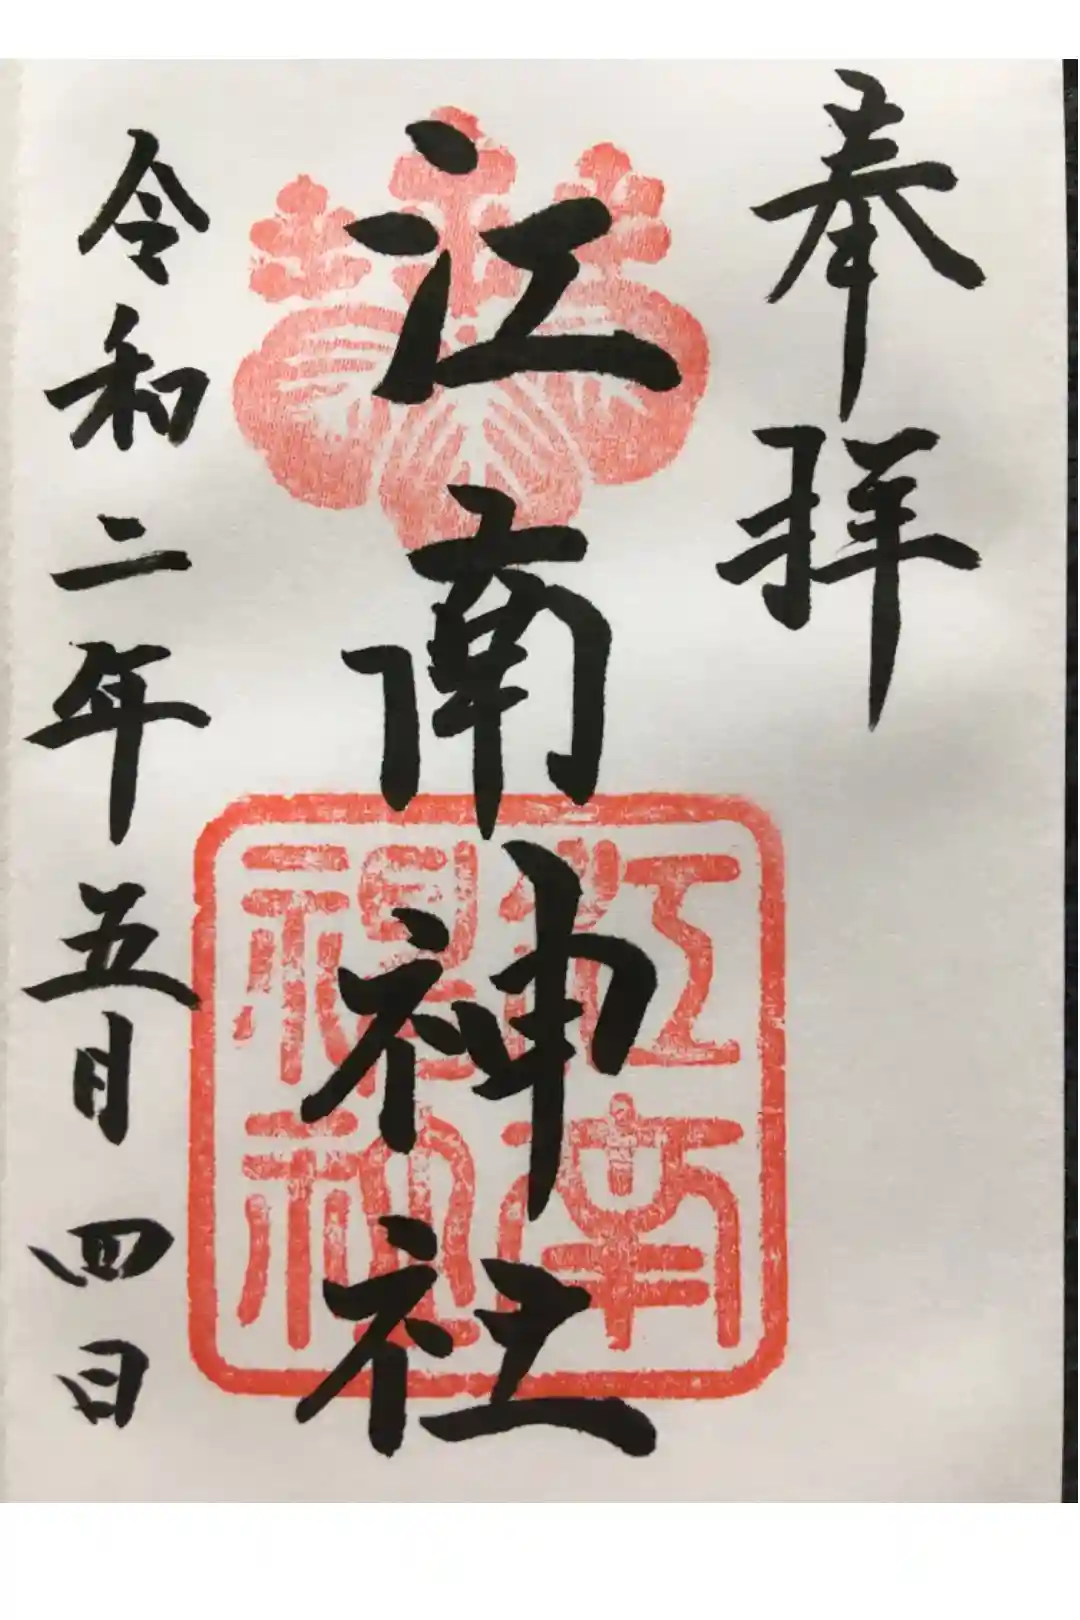 奉拝
江南神社
江南神社
令和二年五月四日